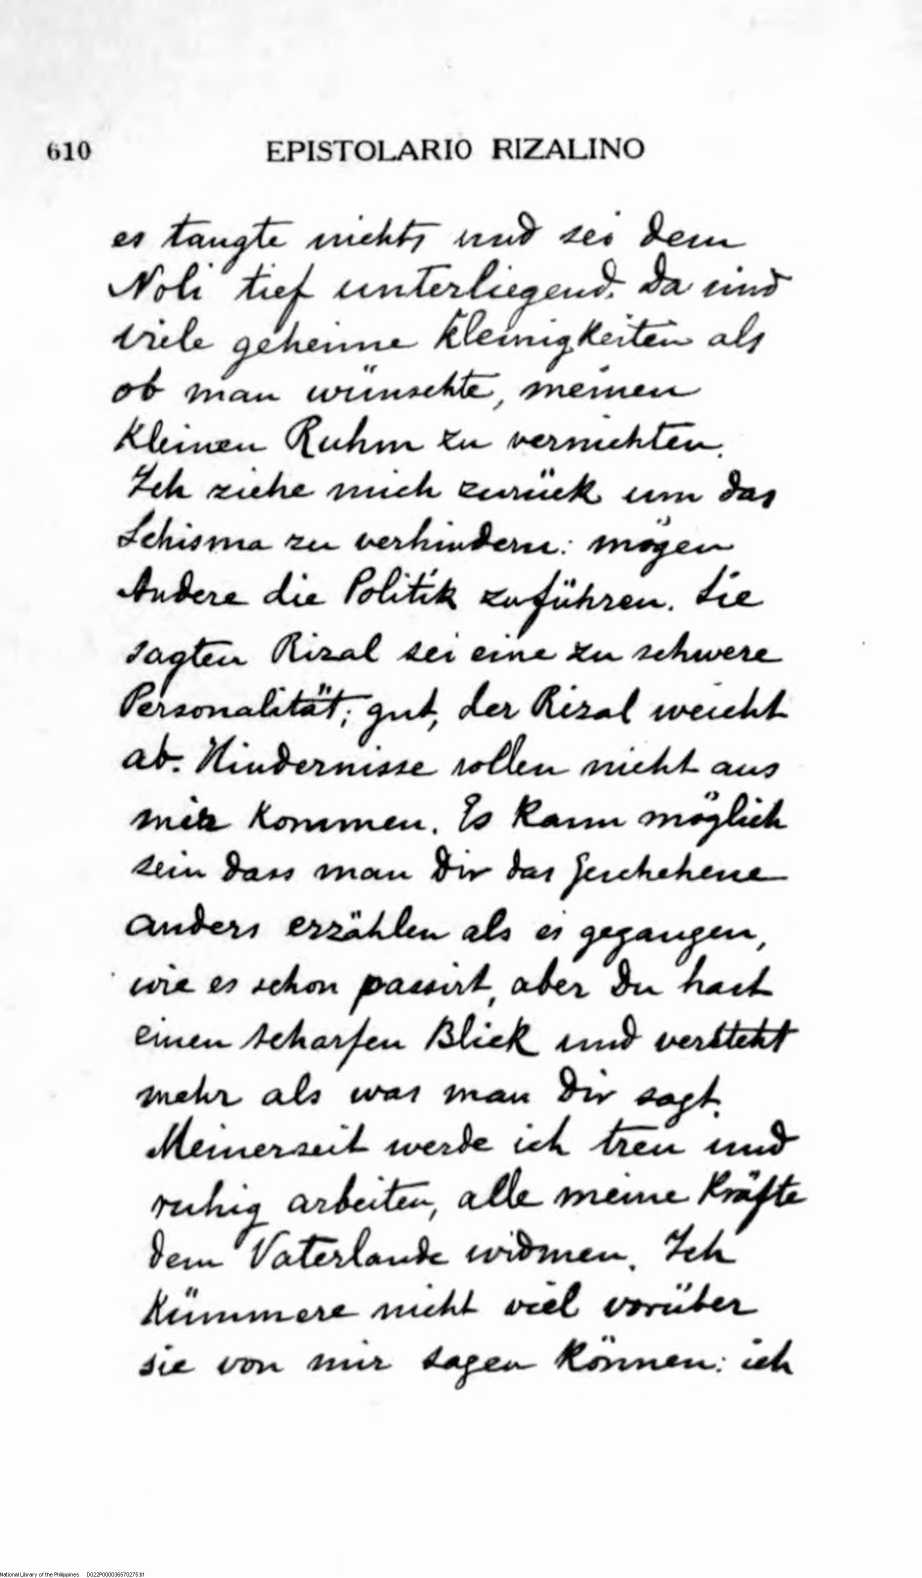 610 EPISTOLARIO RIZALINO
es taugte nichts und sei dem
Noli tief unterliegend. Da sind
viele geheime Kleinigkeiten als
ob man wünschte, meinen
kleinen Ruhm zu vernichten.
Ich ziehe mich zurück um das
Schisma zu verhindern: mögen
Andere die Politik zuführen. Sie
sagten Rizal sei eine zu schwere
Personalität; gut, der Rizal weicht
ab. Hindernisse sollen nicht aus
mir kommen. Es kann möglich
sein dass man Dir das Geschehene
anders erzählen als es gegangen,
wie es schon passirt, aber Du hast
einen scharfen Blick und versteht
mehr als was man Dir sagt.
Meinerseit werde ich treu und
ruhig arbeiten, alle meine Kräfte
dem Vaterlande widmen. Ich
kümmere nicht viel vorüber
sie von mir sagen können: ich
National Library of the Philippines